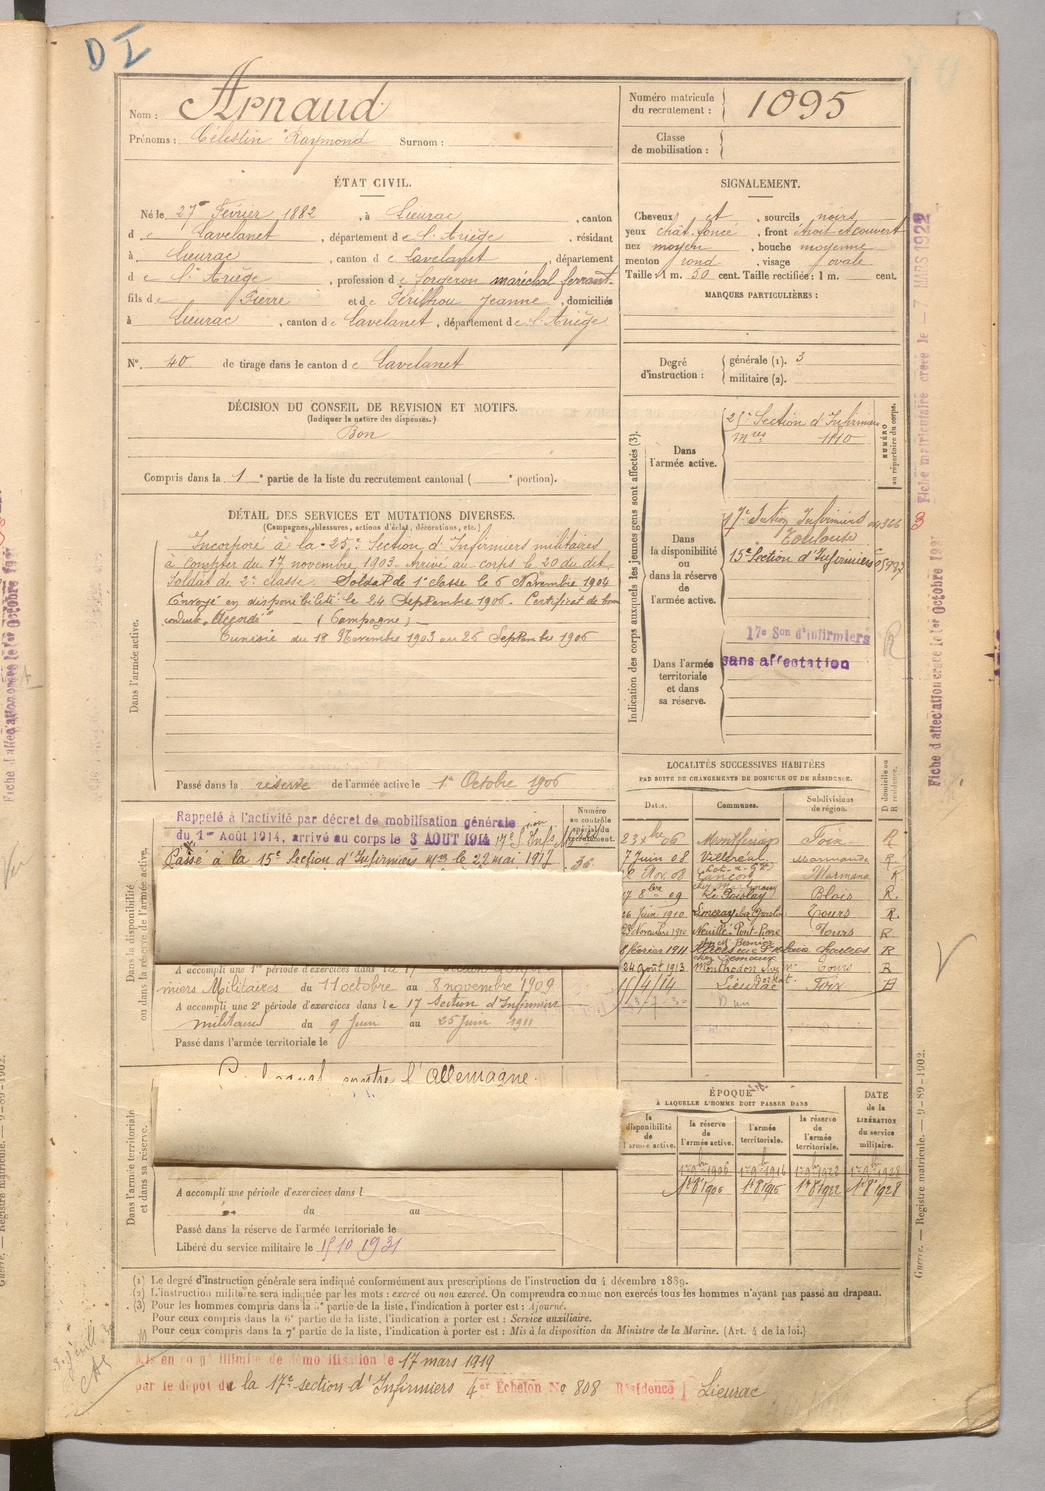 D I
Nom : Arnaud
Prénoms : Célestin Raymond Surnom :
Numéro matricule du recrutement : 1095
Classe de mobilisation :
ÉTAT CIVIL.
Né le 27 Février 1882, à Lieurac, canton
de Lavelanet, département de l'Ariège, résidant
à Lieurac, canton de Lavelanet, département
de l'Ariège, profession de forgeron maréchal ferrant
fils de Pierre et de Jeanne, domiciliés
à Lieurac, canton de Lavelanet, département de l'Ariège
N° 40 de tirage dans le canton de Lavelanet
DÉCISION DU CONSEIL DE REVISION ET MOTIFS.
(Indiquer la nature des dispenses.)
Bon
Compris dans la 1e partie de la liste du recrutement cantonal ( e portion).
DÉTAIL DES SERVICES ET MUTATIONS DIVERSES.
(Campagnes, blessures, actions d'éclat, décorations, etc.)
Dans l'armée active.
Incorporé à la 25e Section d'Infirmiers militaires
à compter du 17 novembre 1903. Arrivé au corps le 20 du dit
Soldat de 2e classe. Soldat de 1e classe le 6 Novembre 1904
Envoyé en disponibilité le 24 Septembre 1906. Certificat de bonne
conduite "Accordé" — (Campagne) —
Tunisie du 18 Novembre 1903 au 26 Septembre 1906
Passé dans la réserve de l'armée active le 1er Octobre 1906
Dans la disponibilité ou dans la réserve de l'armée active.
Rappelé à l'activité par décret de mobilisation générale
du 1er Août 1914, arrivé au corps le 3 AOUT 1914 17e
Passé à la 15e Section d'Infirmiers le 22 mai 1917
Numéro au contrôle spécial du recrutement.
36
A accompli une 1re période d'exercices dans la 17
miers Militaires du 11 octobre au 8 novembre 1909
A accompli une 2e période d'exercices dans le 17 section d'Infirmiers
militaires du 9 Juin au 25 Juin 1911
Passé dans l'armée territoriale le
Dans l'armée territoriale et dans sa réserve.
contre l'Allemagne.
A accompli une période d'exercices dans l
du au
Passé dans la réserve de l'armée territoriale le
Libéré du service militaire le 15 10 1931
SIGNALEMENT.
Cheveux et, sourcils noirs
yeux chât. foncé, front étroit et couvert
nez moyen, bouche moyenne
menton rond, visage ovale
Taille : 1 m. 50 cent. Taille rectifiée : 1 m. cent.
MARQUES PARTICULIÈRES :
Degré d'instruction : générale (1). 3
militaire (2).
Indication des corps auxquels les jeunes gens sont affectés (3).
NUMÉRO au répertoire du corps.
Dans l'armée active.
25e Section d'Infirmiers
Mres 1810
Dans la disponibilité ou dans la réserve de l'armée active.
17e Section Infirmiers
Toulouse
15e Section d'Infirmiers
Dans l'armée territoriale et dans sa réserve.
17e Son d'infirmiers
sans affectation
LOCALITÉS SUCCESSIVES HABITÉES
PAR SUITE DE CHANGEMENTS DE DOMICILE OU DE RÉSIDENCE.
Dates. Communes. Subdivisions de région. D domicile ou R résidence.
23 Xbre 06 Montferrier Foix R
7 Juin 08 Villeréal Marmande R
2 Nov. 08 Marmande R
17 8bre 09 Blois R.
26 Juin 1910 Tours R.
23 Novembre 1910 Neuillé-Pont-Pierre Tours R
8 février 1911 R
24 août 1913 Monthodon Tours R
11/4/14 Lieurac Foix
ÉPOQUE
À LAQUELLE L'HOMME DOIT PASSER DANS
la disponibilité de l'armée active.
la réserve de l'armée active.
l'armée territoriale.
la réserve de l'armée territoriale.
DATE de la LIBÉRATION du service militaire.
1r 9bre 1906 1r 9bre 1916 1r 9bre 1922 1r 9bre 1928
1r 8 1906 1r 8 1916 1r 8 1922 1r 8 1928
(1) Le degré d'instruction générale sera indiqué conformément aux prescriptions de l'instruction du 4 décembre 1889.
(2) L'instruction militaire sera indiquée par les mots : exercé ou non exercé. On comprendra comme non exercés tous les hommes n'ayant pas passé au drapeau.
(3) Pour les hommes compris dans la 5e partie de la liste, l'indication à porter est : Ajourné.
Pour ceux compris dans la 6e partie de la liste, l'indication à porter est : Service auxiliaire.
Pour ceux compris dans la 7e partie de la liste, l'indication à porter est : Mis à la disposition du Ministre de la Marine. (Art. 4 de la loi.)
Mis en congé illimité de démobilisation le 17 mars 1919
par le dépôt de la 17e section d'Infirmiers 4er Echelon No 808 Résidence Lieurac
Fiche matriculaire créée le 7 MARS 1922
Fiche d'affectation créée le 1er Octobre 192
Guerre. — Registre matricule. — 9-89-1902.